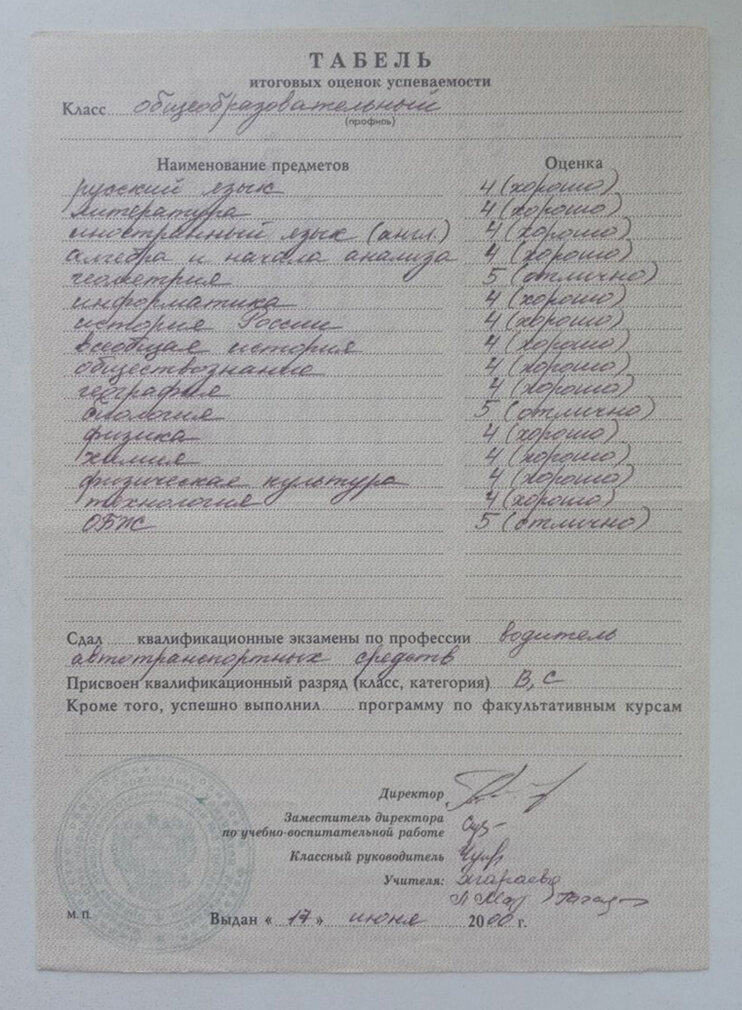 ТАБЕЛЬ
итоговых оценок успеваемости
Класс общеобразовательный
(профиль)
Наименование предметов Оценка
русский язык 4 (хорошо)
литература 4 (хорошо)
иностранный язык (англ.) 4 (хорошо)
алгебра и начала анализа 4 (хорошо)
геометрия 5 (отлично)
информатика 4 (хорошо)
история России 4 (хорошо)
всеобщая история 4 (хорошо)
обществознание 4 (хорошо)
география 4 (хорошо)
биология 5 (отлично)
физика 4 (хорошо)
химия 4 (хорошо)
физическая культура 4 (хорошо)
технология 4 (хорошо)
ОБЖ 5 (отлично)
Сдал квалификационные экзамены по профессии водитель
автотранспортных средств
Присвоен квалификационный разряд (класс, категория) В, С
Кроме того, успешно выполнил программу по факультативным курсам
Директор
Заместитель директора
по учебно-воспитательной работе
Классный руководитель
Учителя:
М. П. Выдан « 17 » июня 2000 г.